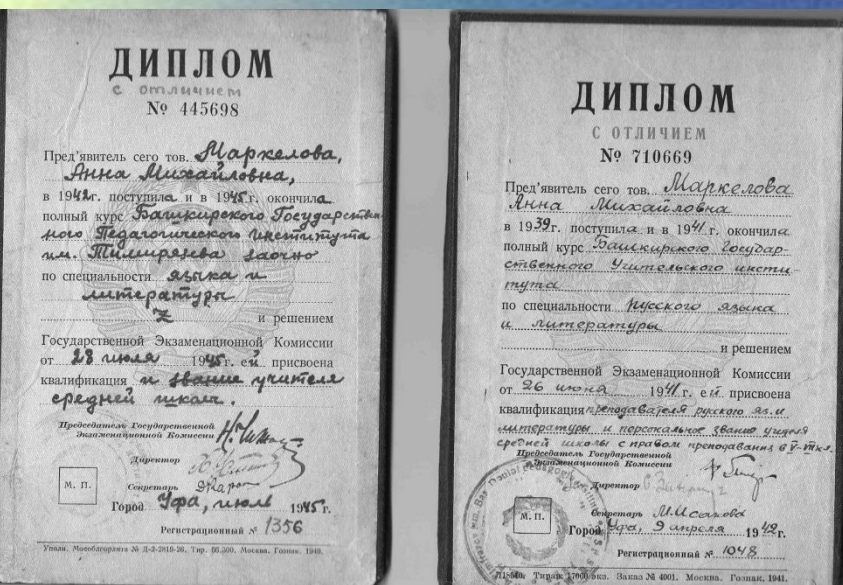 ДИПЛОМ
с отличием
№ 445698
Пред'явитель сего тов. Маркелова,
Анна Михайловна,
в 1942г. поступила и в 1945г. окончила
полный курс Башкирского Государствен-
ного Педагогического института
им. Тимирязева заочно
по специальности языка и
литературы
и решением
Государственной Экзаменационной Комиссии
от 28 июля 1945г. ей присвоена
квалификация и звание учителя
средней школы.
Председатель Государственной
Экзаменационной Комиссии
Директор
Секретарь
М. П.
Город Уфа, июль 1945г.
Регистрационный № 1356
Москва. Гознак. 1940.
ДИПЛОМ
С ОТЛИЧИЕМ
№ 710669
Пред'явитель сего тов. Маркелова
Анна Михайловна
в 1939г. поступила и в 1941г. окончила
полный курс Башкирского Государ-
ственного Учительского инсти-
тута
по специальности русского языка
и литературы
и решением
Государственной Экзаменационной Комиссии
от 26 июня 1941г. ей присвоена
квалификация преподавателя русского яз. и
литературы и персональное звание учителя
средней школы с правом преподавания в V-VII кл.
Председатель Государственной
Экзаменационной Комиссии
Директор
Секретарь М.Исакова
М. П.
Город Уфа, 9 апреля 1942г.
Регистрационный № 1048
Тираж 17000 экз. Заказ № 4001. Москва. Гознак, 1941.